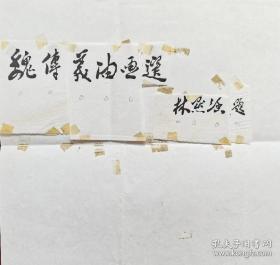 魏傳義油画選
林默涵題
孔夫子旧书网